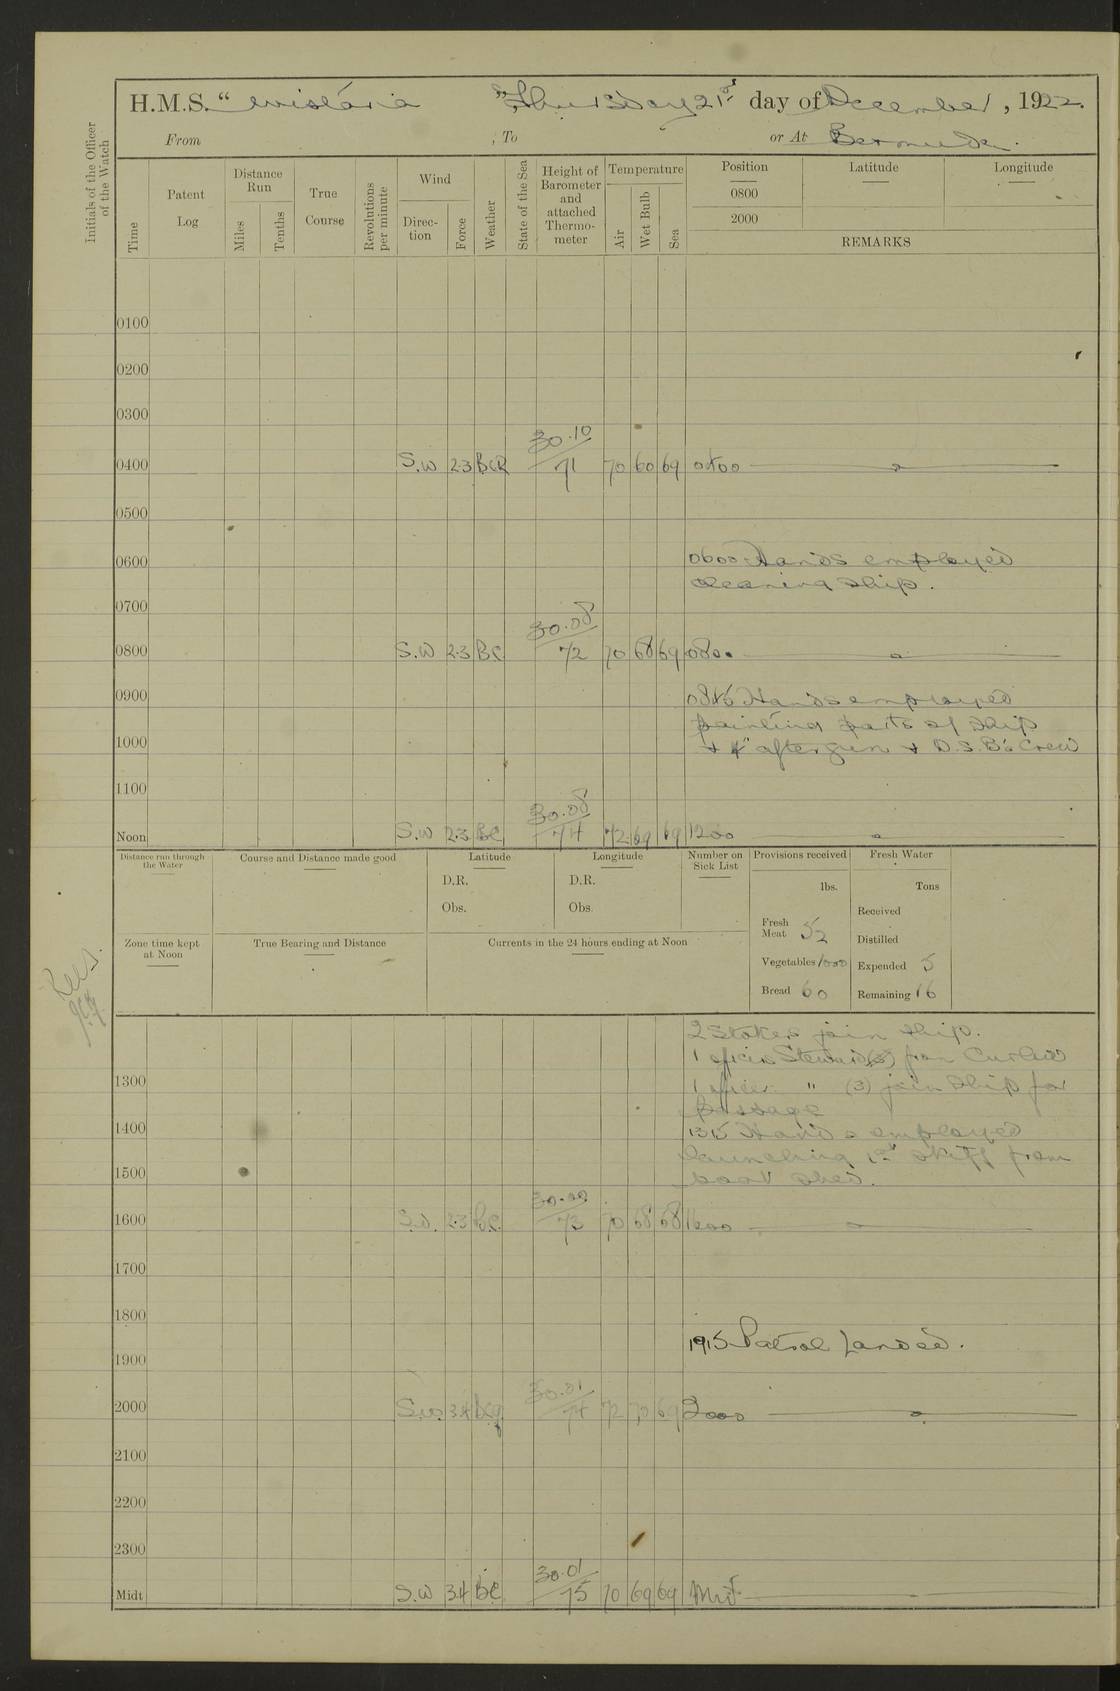 H.M.S. "Wistaria" Thursday 21st day of December, 1922.
From , To or At Bermuda.
Initials of the Officer of the Watch
Time
Patent Log
Distance Run
Miles
Tenths
True Course
Revolutions per minute
Wind
Direction
Force
Weather
State of the Sea
Height of Barometer and attached Thermometer
Temperature
Air
Wet Bulb
Sea
Position Latitude Longitude
0800
2000
REMARKS
0100
0200
0300
0400 S.W 2.3 BCR 30.10 71 70 60 69 0400
0500
0600 0600 Hands employed
cleaning ship.
0700
0800 S.W 2.3 BC 30.08 72 70 68 69 0800
0900 0845 Hands employed
painting parts of ship
1000 & 4" aftergun & D.S.B's Crew
1100
Noon S.W 2.3 BC 30.08 74 72 69 69 1200
Distance run through the Water
Course and Distance made good
Latitude
D.R.
Obs.
Longitude
D.R.
Obs.
Number on Sick List
Provisions received
lbs.
Fresh Meat 52
Vegetables 1000
Bread 60
Fresh Water
Tons
Received
Distilled
Expended 5
Remaining 16
Zone time kept at Noon
True Bearing and Distance
Currents in the 24 hours ending at Noon
2 Stokers join ship.
1 officers Steward from Curlew
1300 1 officer " (3) join ship for
passage
1400 1315 Hands employed
launching 1st skiff from
1500 boat shed.
1600 S.W. 2.3 BC 30.00 73 70 68 68 1600
1700
1800
1915 Patrol Landed.
1900
2000 S.W. 3.4 bcq 30.01 74 72 70 69 2000
2100
2200
2300
Midt S.W 3.4 BC 30.01 75 70 69 69 Midt